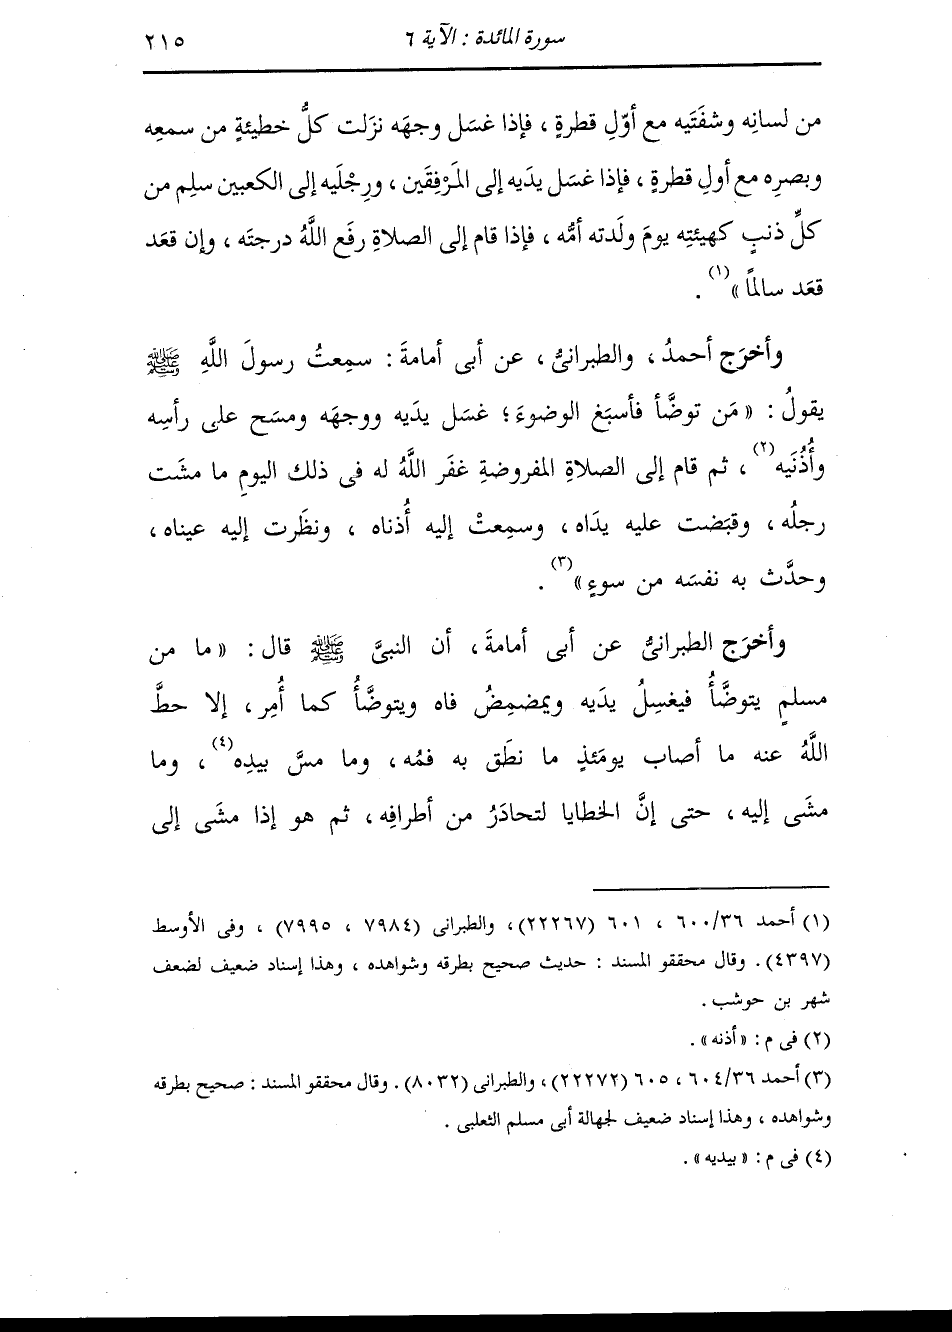 سورة المائدة : الآية ٦
٢١٥
من لسانِه وشفَتَيه مع أوّلِ قطرةٍ ، فإذا غسَل وجهَه نزَلت كلُّ خطيئةٍ من سمعِه
وبصرِه مع أولِ قطرةٍ ، فإذا غسَل يدَيه إلى المَرْفِقَين ، ورِجْلَيه إلى الكعبين سلِم من
كلِّ ذنبٍ كهيئتِه يومَ ولَدته أمُّه ، فإذا قام إلى الصلاةِ رفَع اللَّهُ درجتَه ، وإن قعَد
قعَد سالمًا »(١) .
وأخرَج أحمدُ ، والطبرانىُّ ، عن أبى أمامةَ : سمِعتُ رسولَ اللَّهِ ﷺ
يقولُ : « مَن توضَّأ فأسبَغ الوضوءَ ؛ غسَل يدَيه ووجهَه ومسَح على رأسِه
وأُذُنَيه(٢) ، ثم قام إلى الصلاةِ المفروضةِ غفَر اللَّهُ له فى ذلك اليومِ ما مشَت
رجلُه ، وقبَضت عليه يدَاه ، وسمِعتْ إليه أُذناه ، ونظَرت إليه عيناه ،
وحدَّث به نفسَه من سوءٍ »(٣) .
وأخرَج الطبرانىُّ عن أبى أمامةَ ، أن النبىَّ ﷺ قال : « ما من
مسلمٍ يتوضَّأُ فيغسِلُ يدَيه ويمضمِضُ فاه ويتوضَّأُ كما أُمِر ، إلا حطَّ
اللَّهُ عنه ما أصاب يومَئذٍ ما نطَق به فمُه ، وما مسَّ بيدِه(٤) ، وما
مشَى إليه ، حتى إنَّ الخطايا لتحادَرُ من أطرافِه ، ثم هو إذا مشَى إلى
(١) أحمد ٦٠٠/٣٦ ، ٦٠١ (٢٢٢٦٧) ، والطبرانى (٧٩٨٤ ، ٧٩٩٥) ، وفى الأوسط
(٤٣٩٧) . وقال محققو المسند : حديث صحيح بطرقه وشواهده ، وهذا إسناد ضعيف لضعف
شهر بن حوشب .
(٢) فى م : « أذنه » .
(٣) أحمد ٦٠٤/٣٦ ، ٦٠٥ (٢٢٢٧٢) ، والطبرانى (٨٠٣٢) . وقال محققو المسند : صحيح بطرقه
وشواهده ، وهذا إسناد ضعيف لجهالة أبى مسلم الثعلبى .
(٤) فى م : « بيديه » .